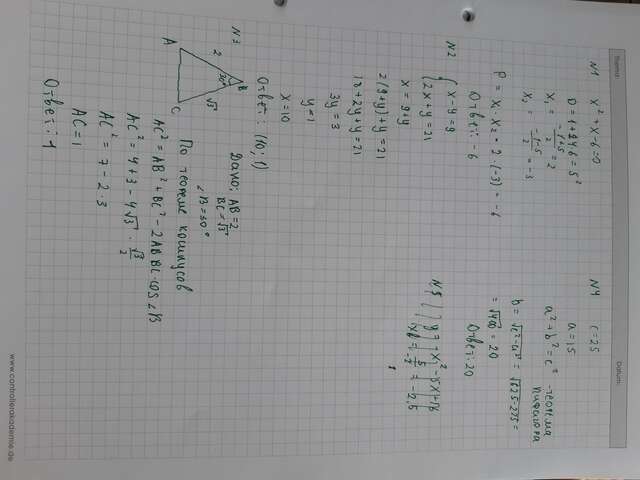 Thema:
Datum:
N1 x² + x - 6 = 0
D = 1 + 24 = 5²
x₁ = (-1+5)/2 = 2
x₂ = (-1-5)/2 = -3
P = x₁ · x₂ = 2 · (-3) = -6
Ответ: -6
N2 { x - y = 9
2x + y = 21
x = 9 + y
2(9+y) + y = 21
18 + 2y + y = 21
3y = 3
y = 1
x = 10
Ответ: (10; 1)
N3
A
2
B
30°
√3
C
Дано: AB = 2
BC = √3
∠B = 30°
По теореме косинусов
AC² = AB² + BC² - 2AB BC · cos ∠B
AC² = 4 + 3 - 4√3 · √3/2
AC² = 7 - 2 · 3
AC = 1
Ответ: 1
N4 c = 25
a = 15
a² + b² = c² - теорема Пифагора
b = √c² - a² = √625 - 225 =
= √400 = 20
Ответ: 20
N5
y = -x² - 5x +
= 5/-2 = -2,5
www.controllerakademie.de